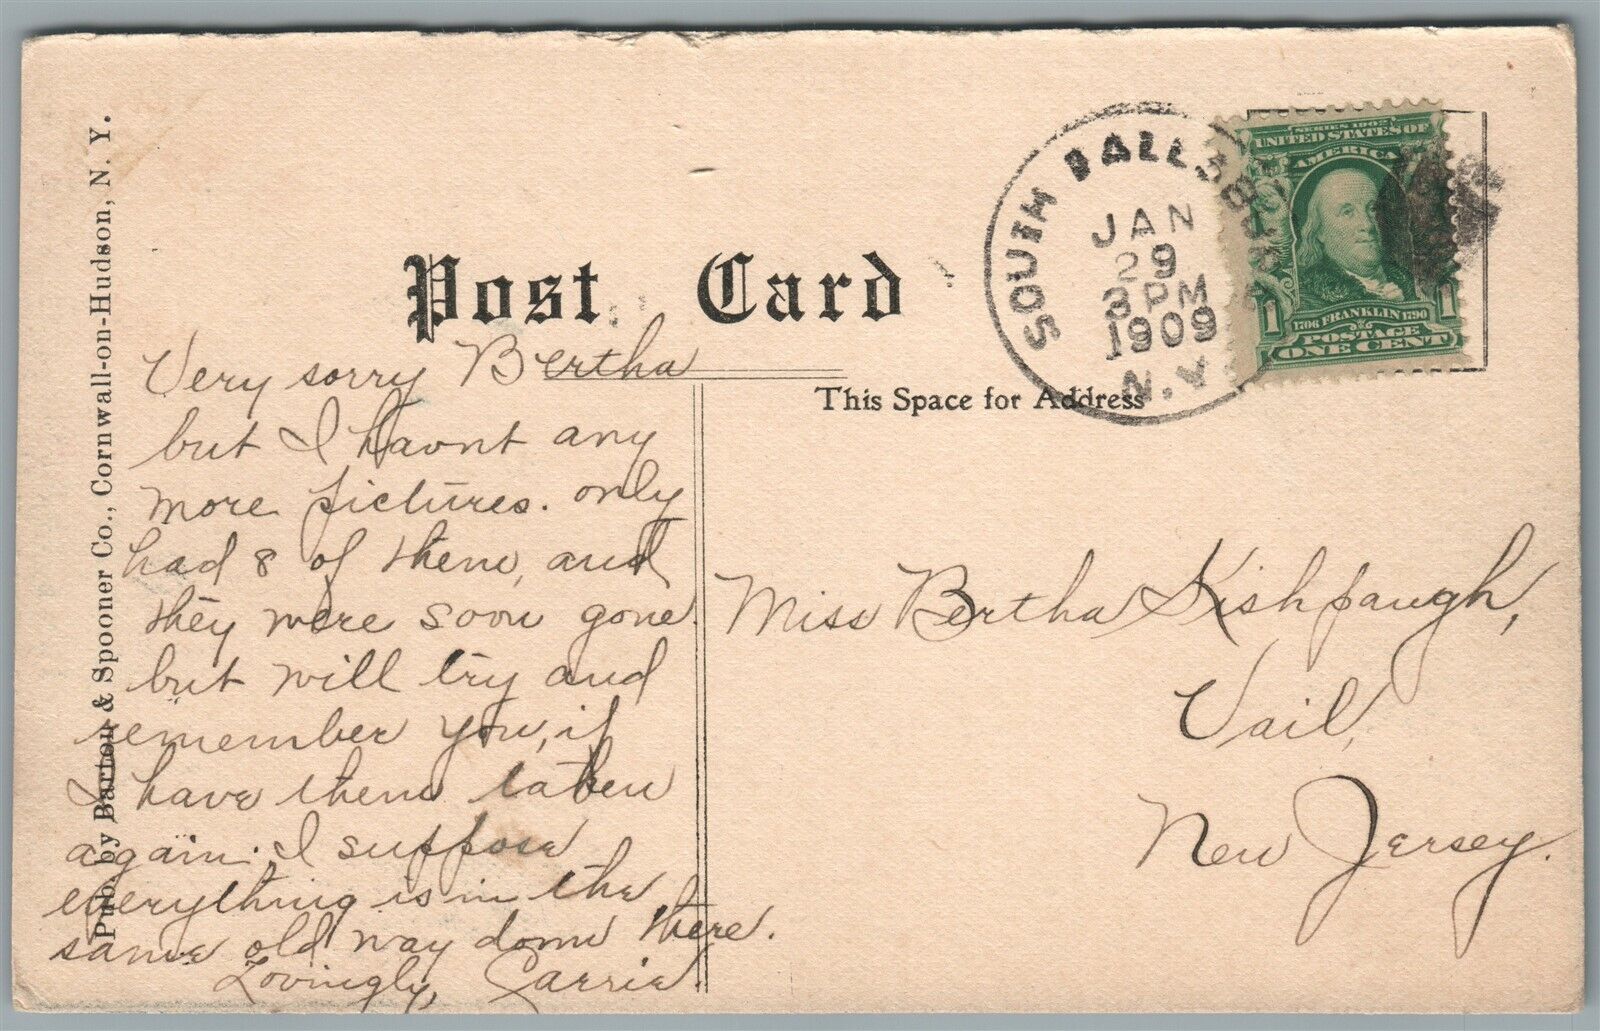 Pub. by Barton & Spooner Co., Cornwall-on-Hudson, N. Y.
Post Card
This Space for Address
SOUTH FALLSBURG
JAN
29
3 PM
1909
N.Y.
SERIES 1902
UNITED STATES OF
AMERICA
1706 FRANKLIN 1790
POSTAGE
1 ONE CENT
Very sorry Bertha
but I havnt any
more pictures. only
had 8 of them, and
they were soon gone.
but will try and
remember you, if
I have them taken
again. I suppose
everything is in the
same old way down there.
Lovingly, Carrie.
Miss Bertha Kishpaugh,
Vail,
New Jersey.